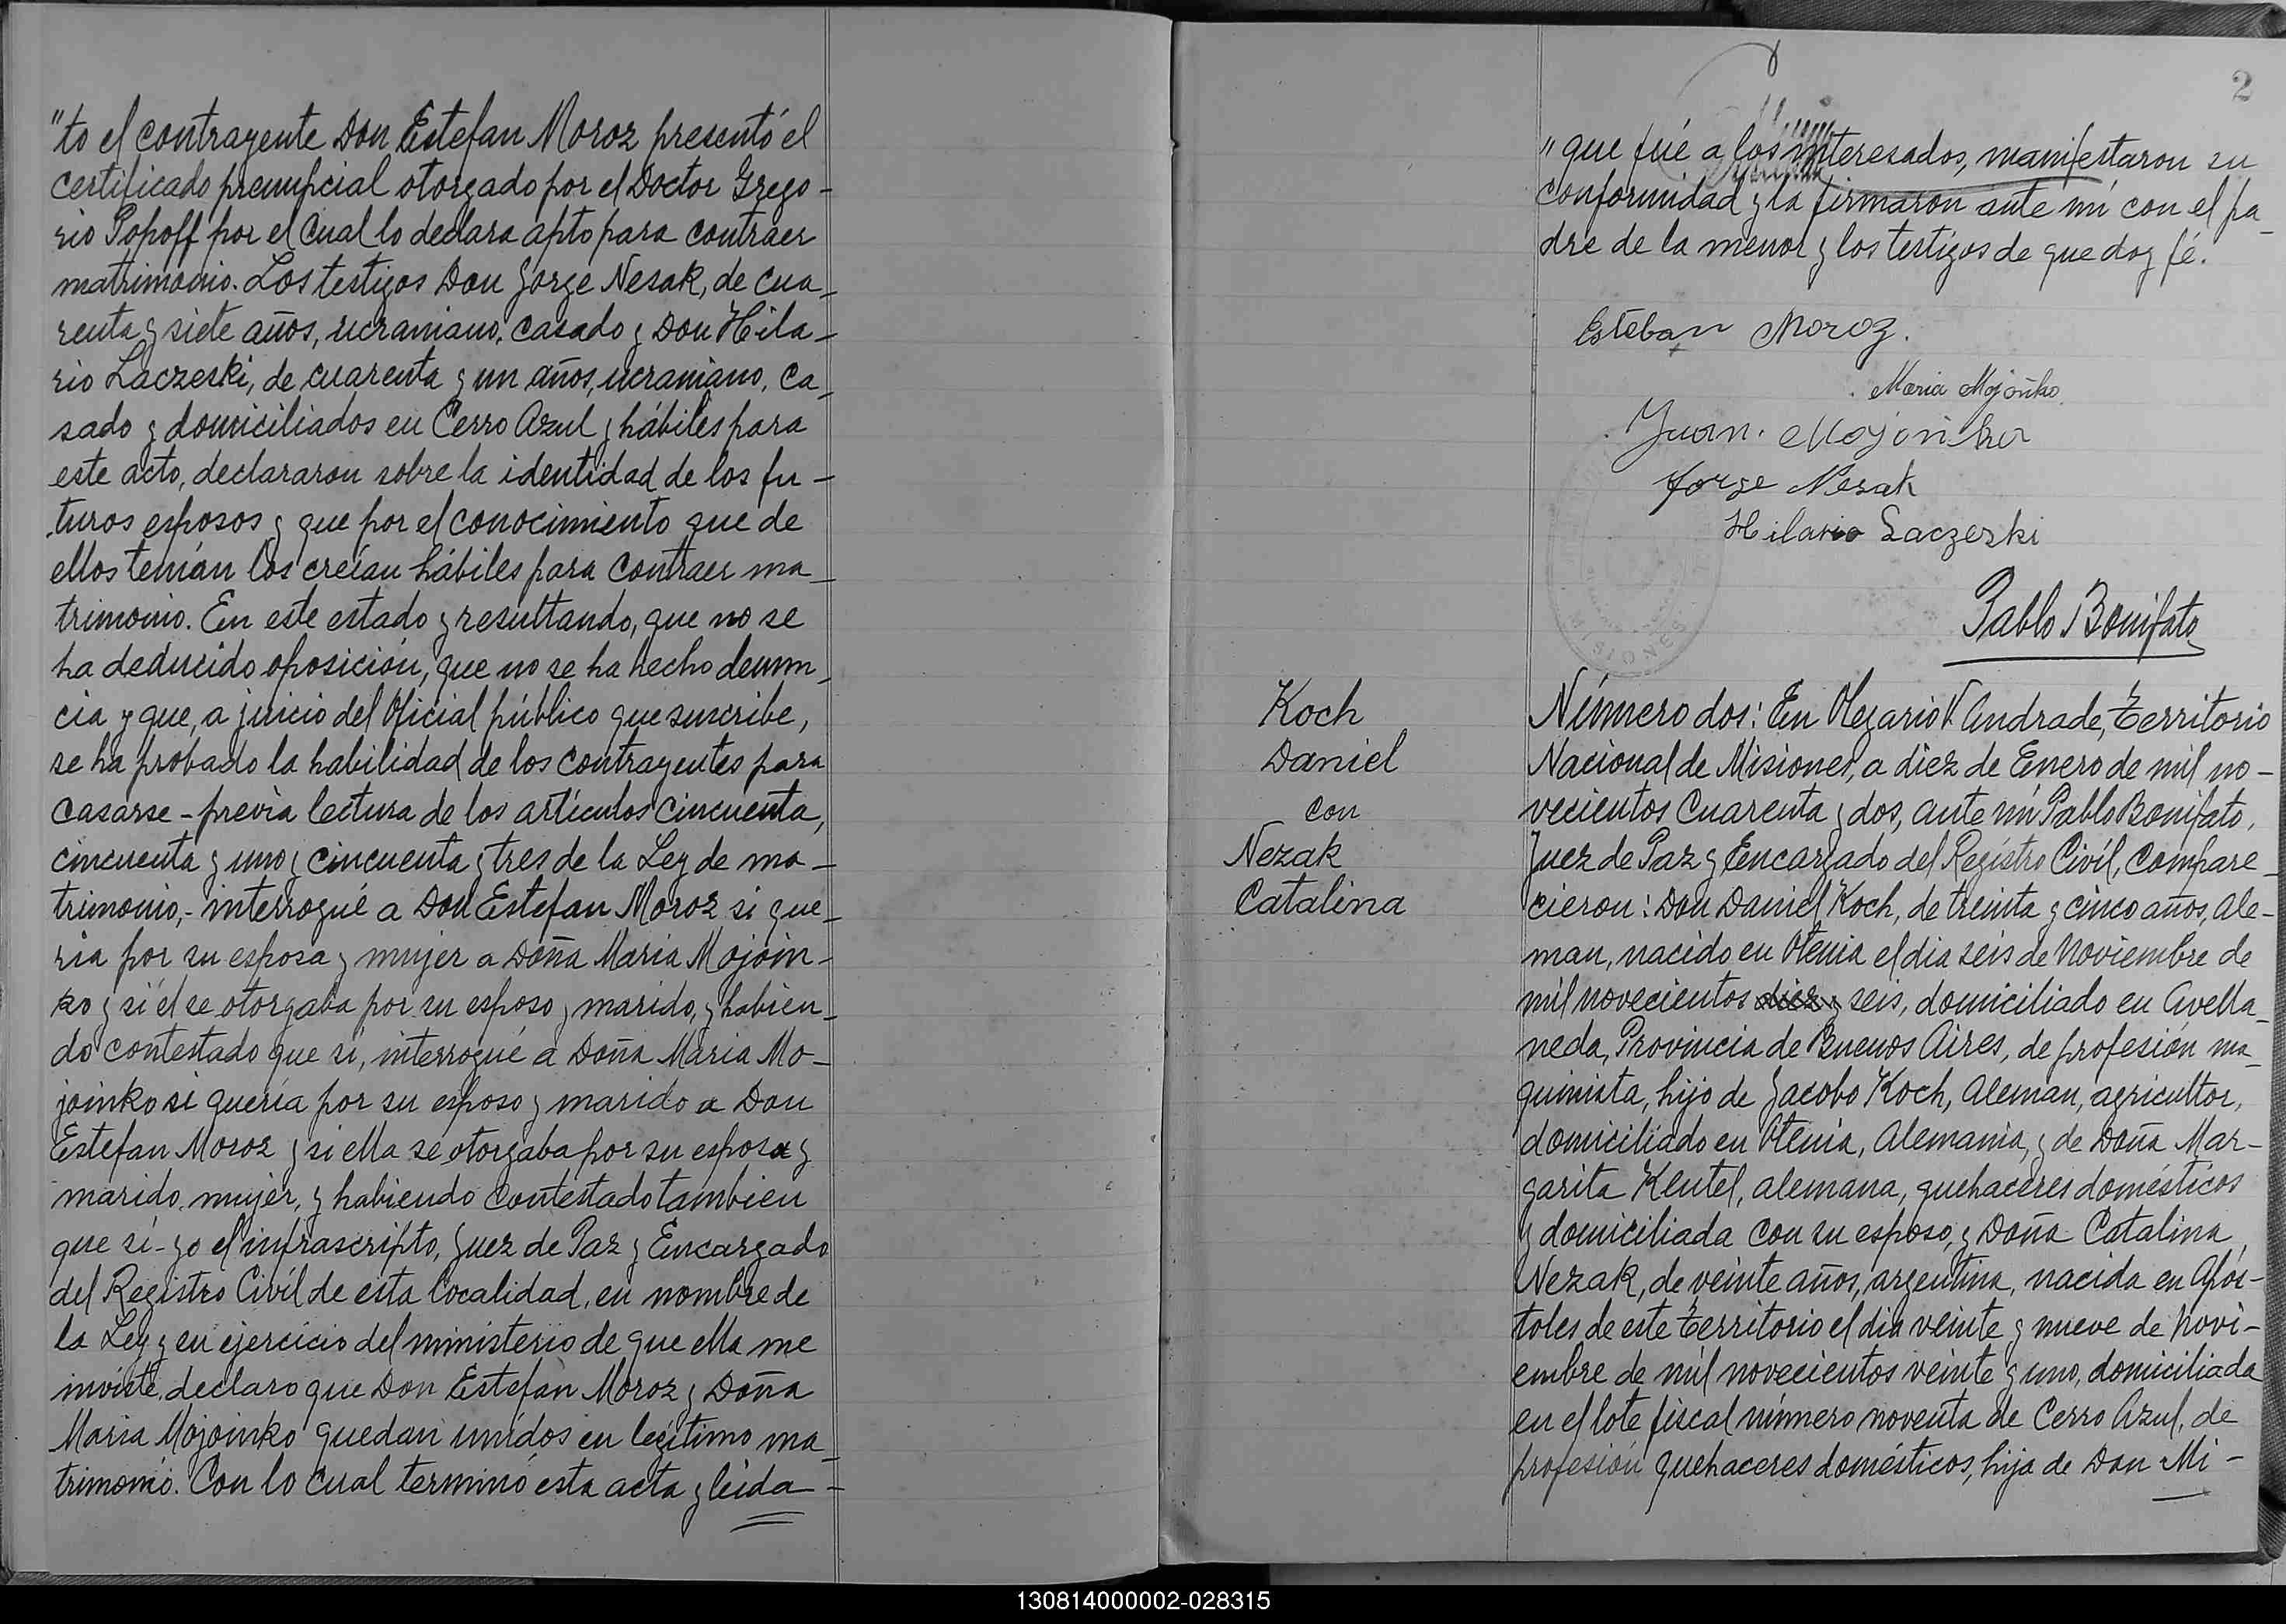 "to el contrayente Don Estefan Moroz presentó el
certificado prenupcial otorgado por el Doctor Grego-
rio Popoff por el cual lo declara apto para contraer
matrimonio. Los testigos Don Jorge Nesak, de cua-
renta y siete años, ucraniano, casado y Don Hila-
rio Laczeski, de cuarenta y un años, ucraniano, ca-
sado y domiciliados en Cerro Azul y hábiles para
este acto, declararon sobre la identidad de los fu-
turos esposos y que por el conocimiento que de
ellos tenían los creían hábiles para contraer ma-
trimonio. En este estado y resultando, que no se
ha deducido oposición, que no se ha hecho denun-
cia y que, a juicio del Oficial público que suscribe,
se ha probado la habilidad de los contrayentes para
casarse - previa lectura de los artículos cincuenta,
cincuenta y uno y cincuenta y tres de la Ley de ma-
trimonio, - interrogué a Don Estefan Moroz si que-
ria por su esposa y mujer a Doña Maria Mojoin-
ko y si él se otorgaba por su esposo y marido, y habien-
do contestado que si, interrogué a Doña Maria Mo-
joinko si quería por su esposo y marido a Don
Estefan Moroz y si ella se otorgaba por su esposa y
marido, mujer, y habiendo contestado tambien
que si - yo el infrascripto, Juez de Paz y Encargado
del Registro Civil de esta localidad, en nombre de
la Ley y en ejercicio del ministerio de que ella me
inviste, declaro que Don Estefan Moroz y Doña
Maria Mojoinko quedan unidos en legítimo ma-
trimonio. Con lo cual terminó esta acta y leida -
2
"que fué a los interesados, manifestaron su
conformidad y la firmaron ante mi con el pa-
dre de la menor y los testigos de que doy fé.
Esteban Moroz.
Maria Mojoñko
Juan. Mojoinko
Jorge Nesak
Hilario Laczeski
Pablo Bonifato
MISIONES
Koch
Daniel
con
Nezak
Catalina
Número dos: En Olegario V Andrade, Territorio
Nacional de Misiones, a diez de Enero de mil no-
vecientos cuarenta y dos, ante mi Pablo Bonifato,
Juez de Paz y Encargado del Registro Civil, compare-
cieron: Don Daniel Koch, de treinta y cinco años, ale-
man, nacido en Otenia el dia seis de Noviembre de
mil novecientos diez y seis, domiciliado en Avella-
neda, Provincia de Buenos Aires, de profesión ma-
quinista, hijo de Jacobo Koch, aleman, agricultor,
domiciliado en Otenia, Alemania, y de Doña Mar-
garita Kentel, alemana, quehaceres domésticos
y domiciliada con su esposo, y Doña Catalina
Nezak, de veinte años, argentina, nacida en Após-
toles de este territorio el dia veinte y nueve de Novi-
embre de mil novecientos veinte y uno, domiciliada
en el lote fiscal número noventa de Cerro Azul, de
profesión quehaceres domésticos, hija de Don Mi-
130814000002-028315